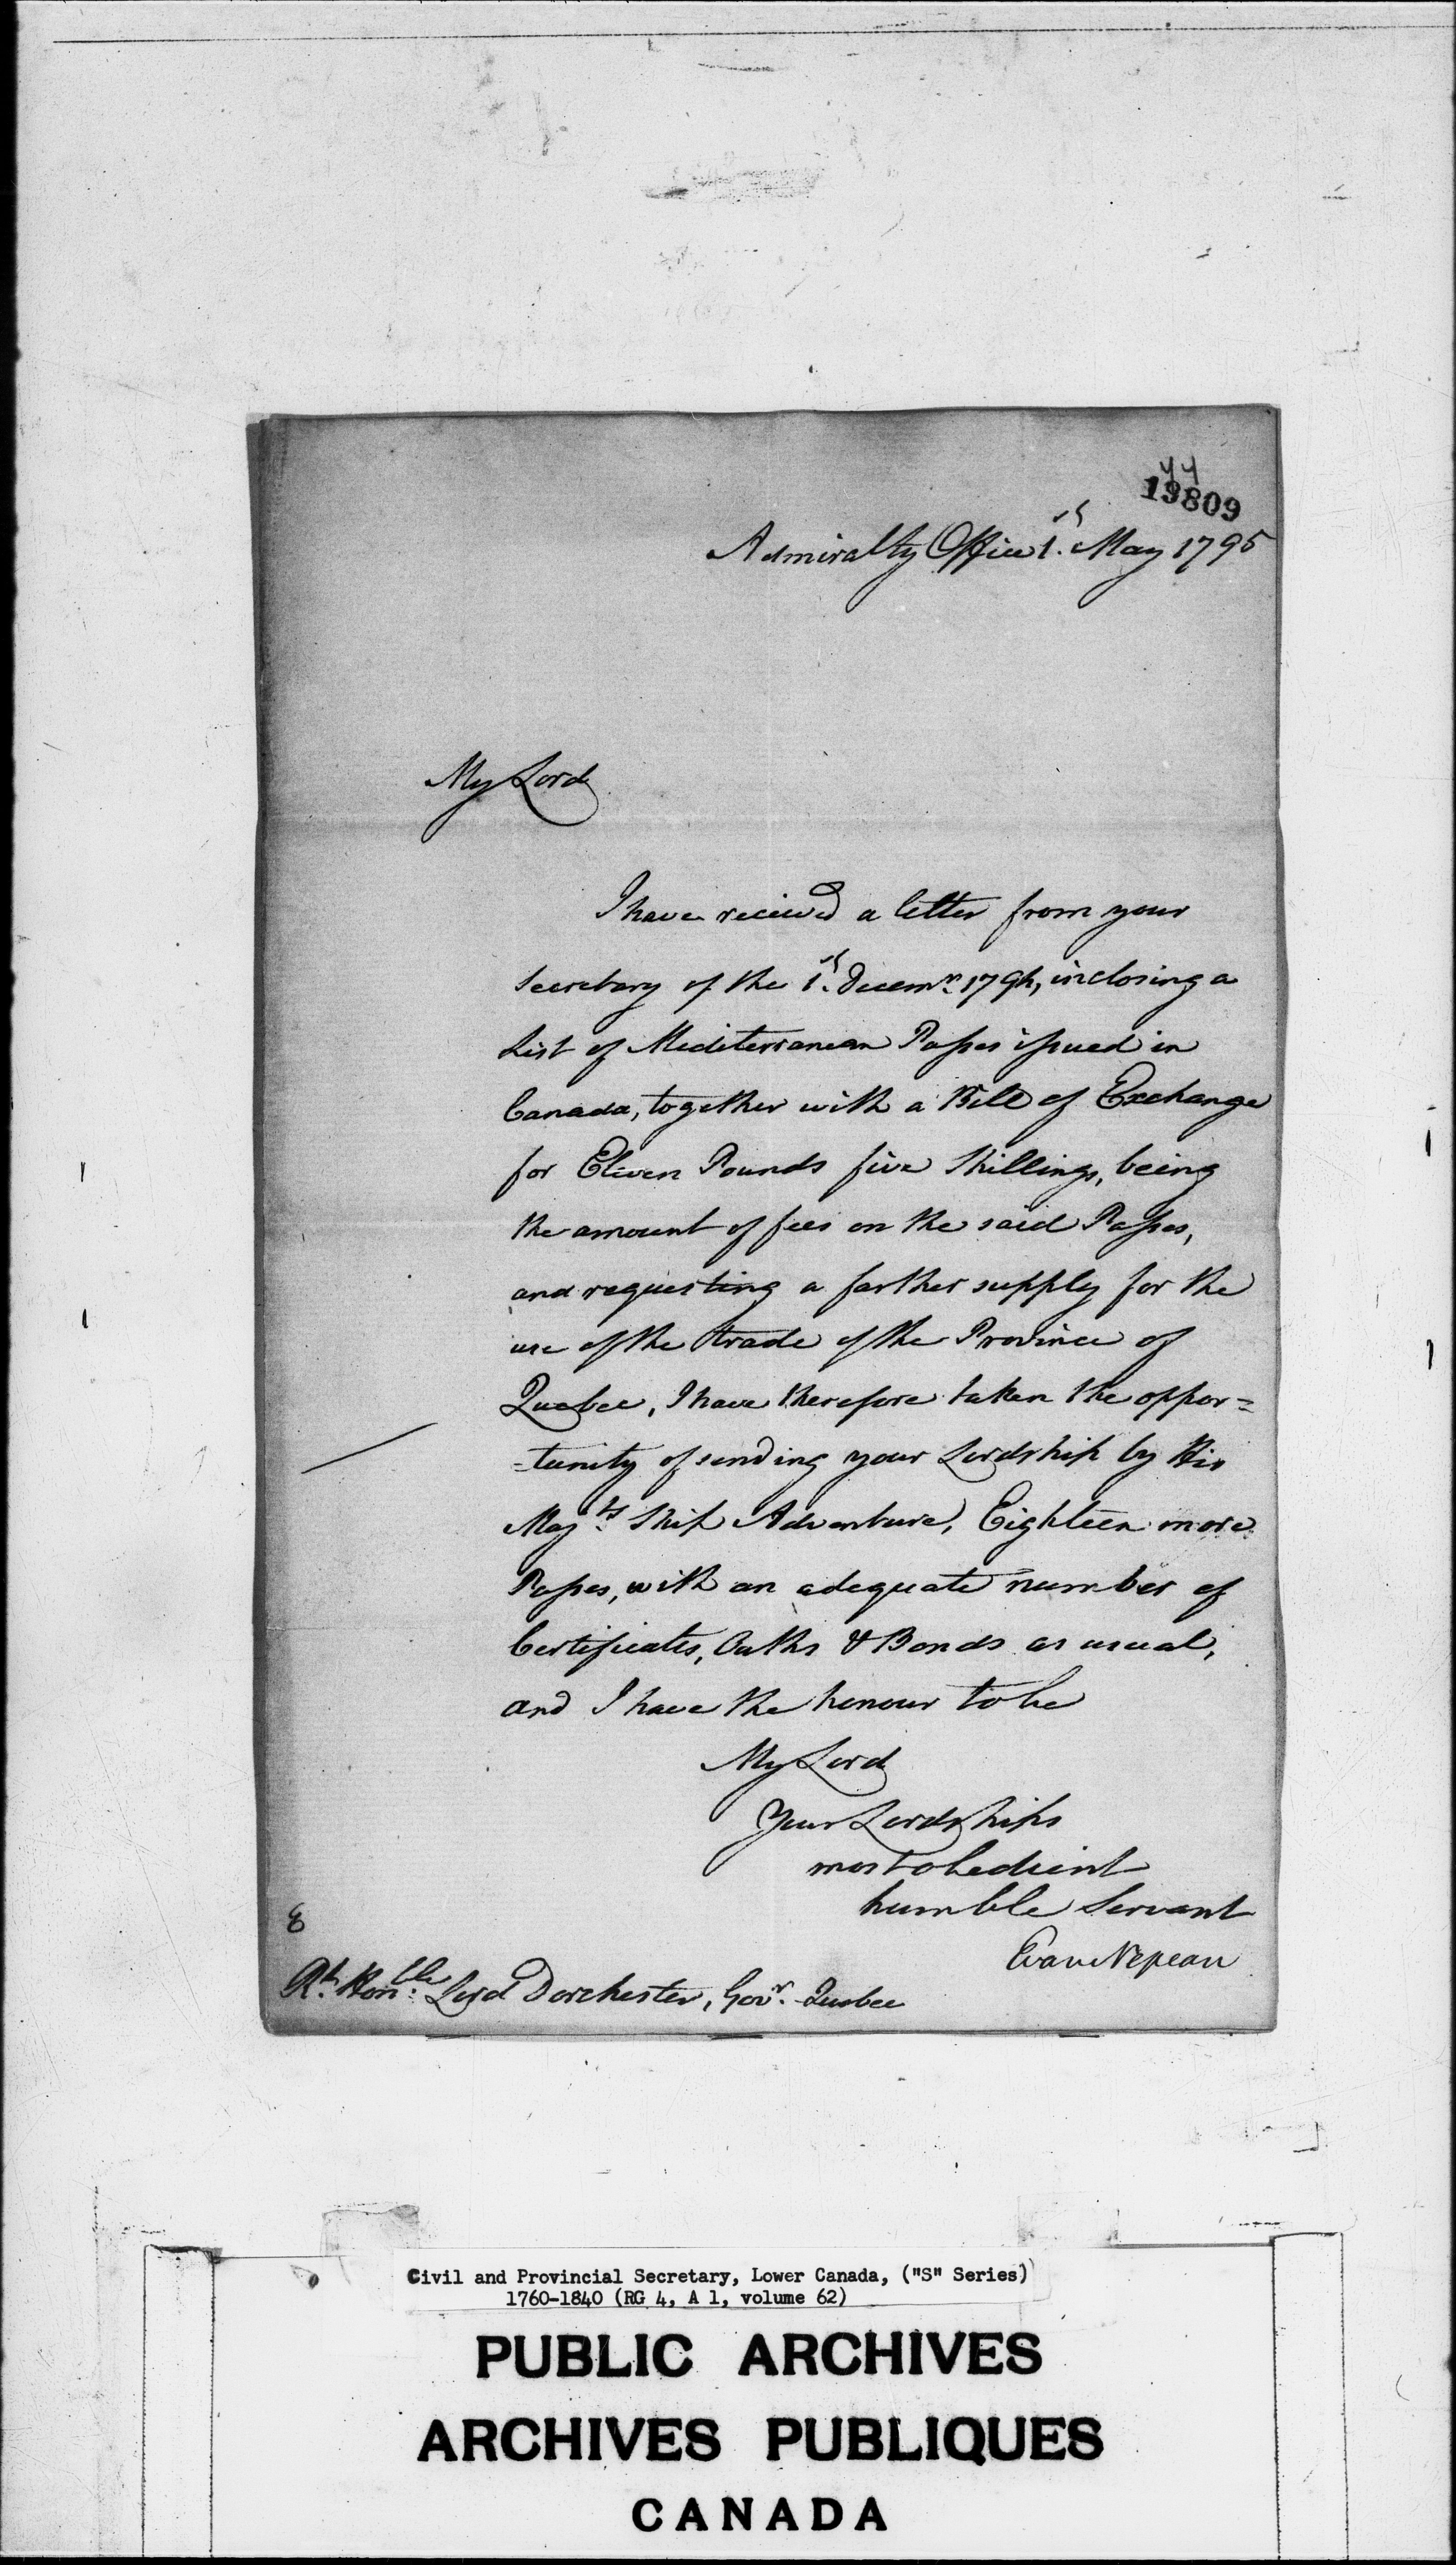 44
19809
Admiralty Office 1.st May 1795
My Lord
I have received a letter from your
Secretary of the 1.st Decemr. 1794, inclosing a
List of Mediterranean Passes issued in
Canada, together with a Bill of Exchange
for Eleven Pounds five Shillings, being
the amount of fees on the said Passes,
and requesting a farther supply for the
use of the trade of the Province of
Quebec, I have therefore taken the oppor=
=tunity of sending your Lordship by His
Maj.ts Ship Adventure, Eighteen more
Passes, with an adequate number of
Certificates, Oaths & Bonds as usual,
and I have the honour to be
My Lord
Your Lordships
most obedient
humble Servant
Evan Nepean
Rt. Hon.ble Lord Dorchester, Govr. Quebec
Civil and Provincial Secretary, Lower Canada, ("S" Series)
1760-1840 (RG 4, A 1, volume 62)
PUBLIC ARCHIVES
ARCHIVES PUBLIQUES
CANADA